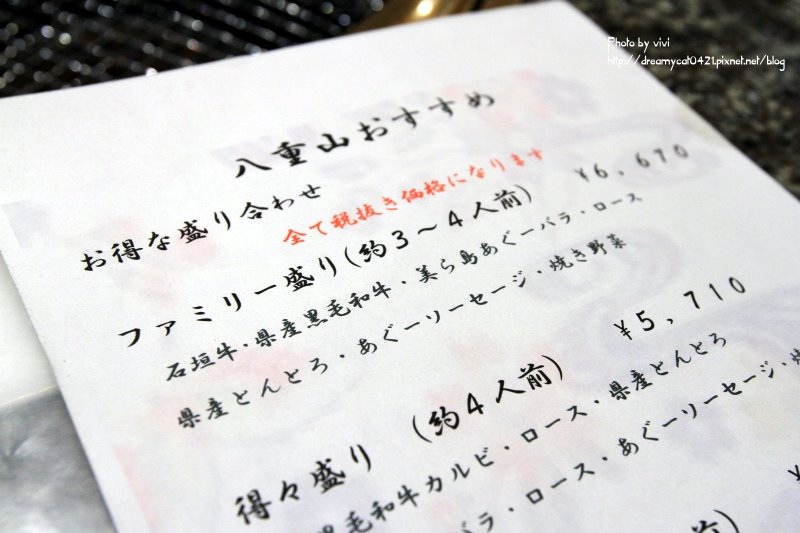 Photo by vivi
http://dreamycat0421.pixnet.net/blog
八重山おすすめ
お得な盛り合わせ
全て税抜き価格になります
ファミリー盛り(約3～4人前) ¥6,670
石垣牛・県産黒毛和牛・美ら島あぐーバラ・ロース
県産とんとろ・あぐーソーセージ・焼き野菜
得々盛り (約4人前) ¥5,710
黒毛和牛カルビ・ロース・県産とんとろ
バラ・ロース・あぐーソーセージ・焼
前)
¥